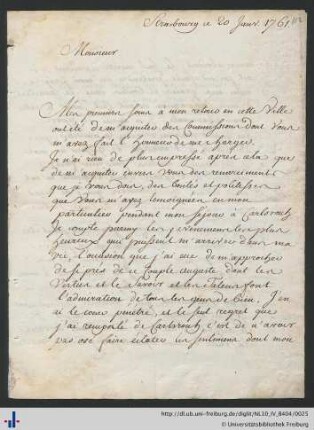 Strasbourg ce 20 Janv. 1761
Monsieur
Mes premiers soins à mon retour en cette Ville
ont été de m'aquiter des Commissions dont Vous
m'avez fait l'honneur de me charger.
Je n'ai rien de plus empressé après cela que
de m'aquiter envers Vous des remerciments
que je Vous dois des bontés et politesses
que Vous m'avez temoignées en mon
particulier pendant mon sejour à Carlsrouhe
Je compte parmy les evenements les plus
heureux qui puissent m'arriver dans ma
vie, l'occasion que j'ai eue de m'approcher
de si près de ce Couple auguste dont les
Vertus et le Savoir et les Talens font
l'admiration de tous les gens de bien. J'en
ai le coeur penetré, et le seul regret que
j'ai remporté de Carlsrouhe c'est de n'avoir
pas osé faire eclater les sentimens dont mon
http://dl.ub.uni-freiburg.de/diglit/NL10_IV_8404/0025
© Universitätsbibliothek Freiburg